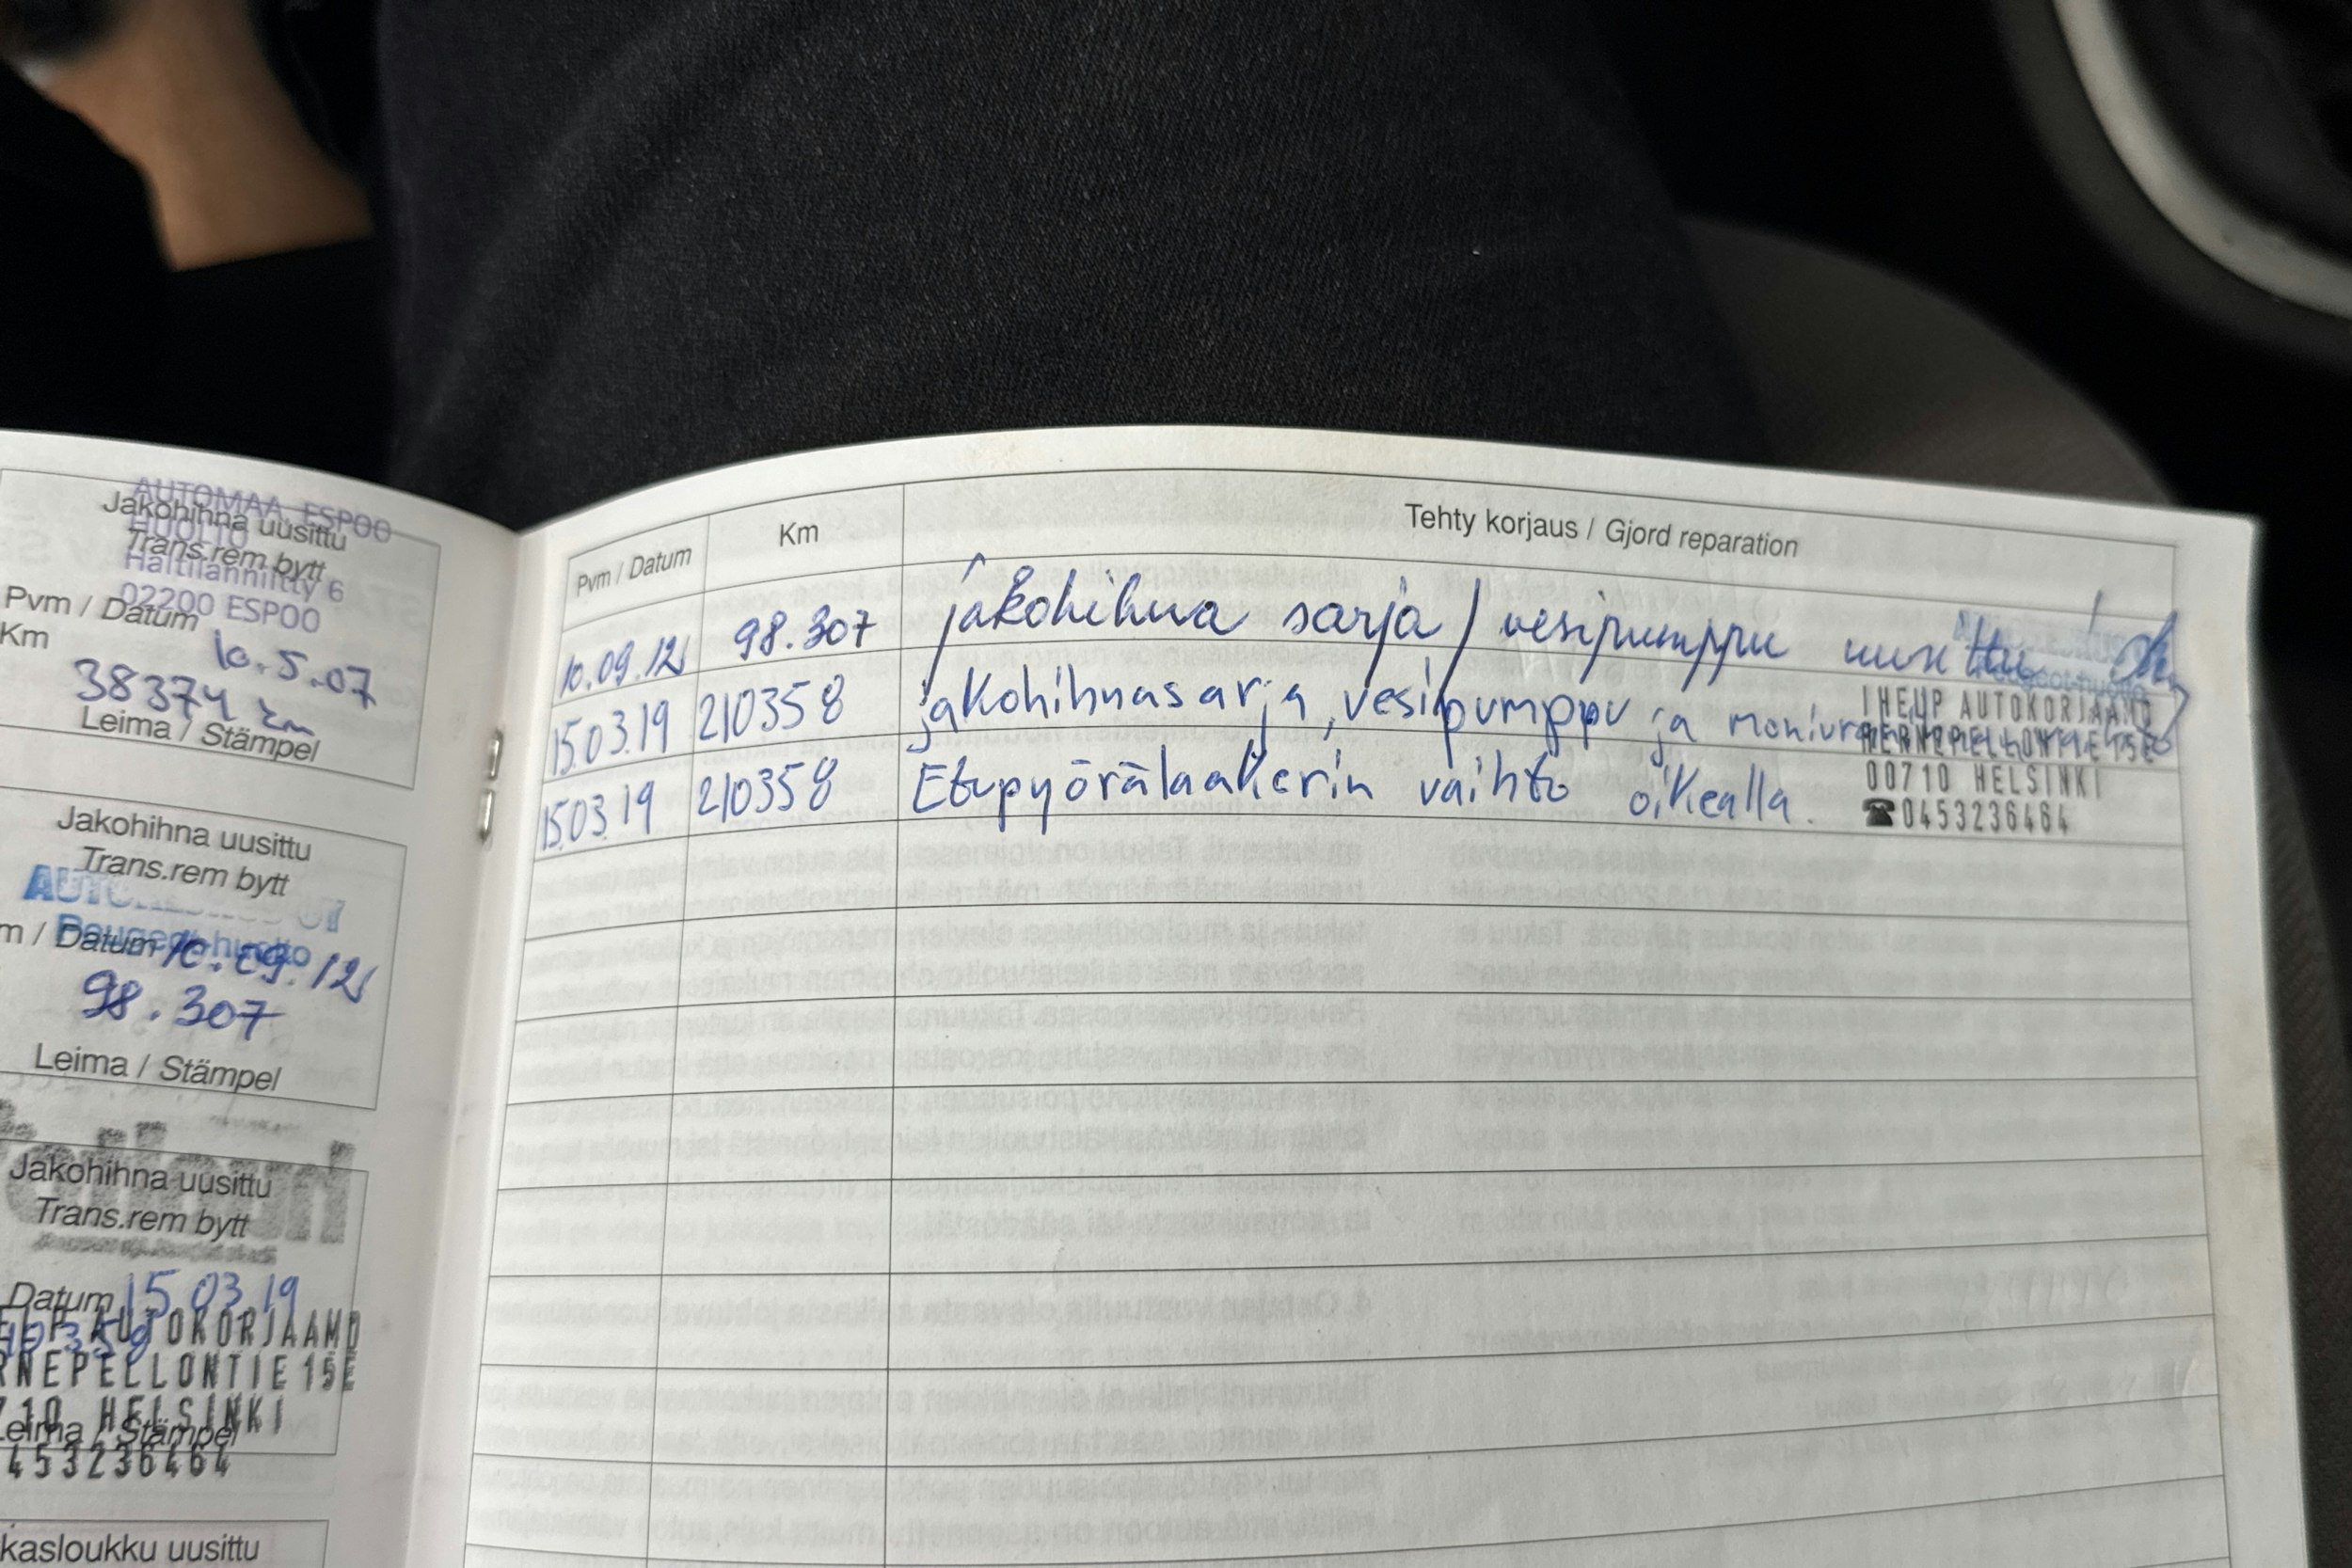 AUTOMAA ESPOO
Jakohihna uusittu
HUOLTO
Trans.rem bytt
Haltilanniitty 6
02200 ESPOO
Pvm / Datum
10.5.07
Km
38374 km
Leima / Stämpel
Jakohihna uusittu
Trans.rem bytt
Peugeot-huolto
m / Datum 10.09.12
98.307
Leima / Stämpel
Jakohihna uusittu
Trans.rem bytt
Datum 15.03.19
AUTOKORJAAMO
RNEPELLONTIE 15E
710 HELSINKI
Leima / Stämpel
453236464
kasloukku uusittu
Pvm / Datum Km Tehty korjaus / Gjord reparation
10.09.12 98.307 jakohihna sarja / vesipumppu uusittu
15.03.19 210358 jakohihnasarja, vesipumppu ja
15.03.19 210358 Etupyörälaakerin vaihto oikealla.
IHEUP AUTOKORJAAMO
HERNEPELLONTIE 15E
00710 HELSINKI
☎0453236464